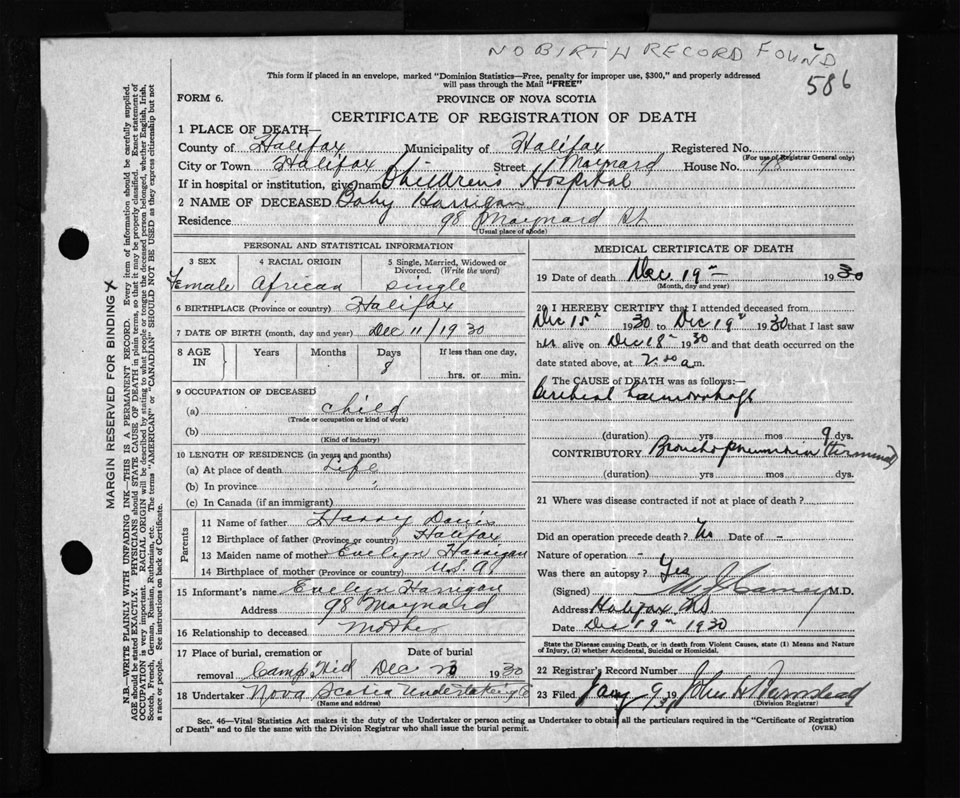 NO BIRTH RECORD FOUND
This form if placed in an envelope, marked "Dominion Statistics—Free, penalty for improper use, $300," and properly addressed
will pass through the Mail "FREE"
586
FORM 6.
PROVINCE OF NOVA SCOTIA
CERTIFICATE OF REGISTRATION OF DEATH
1 PLACE OF DEATH—
County of Halifax Municipality of Halifax Registered No.
(For use of Registrar General only)
City or Town Halifax Street Maynard House No. 98
If in hospital or institution, give name Childrens Hospital
2 NAME OF DECEASED Baby Harrigan
Residence 98 Maynard St
(Usual place of abode)
PERSONAL AND STATISTICAL INFORMATION
3 SEX 4 RACIAL ORIGIN 5 Single, Married, Widowed or
Divorced. (Write the word)
Female African single
6 BIRTHPLACE (Province or country) Halifax
7 DATE OF BIRTH (month, day and year) Dec 11/1930
8 AGE IN Years Months Days If less than one day,
8
hrs. or min.
9 OCCUPATION OF DECEASED
(a) child
(Trade or occupation or kind of work)
(b)
(Kind of industry)
10 LENGTH OF RESIDENCE (in years and months)
(a) At place of death Life
(b) In province "
(c) In Canada (if an immigrant)
Parents
11 Name of father Harry Davis
12 Birthplace of father (Province or country) Halifax
13 Maiden name of mother Evelyn Harrigan
14 Birthplace of mother (Province or country) U.S.A.
15 Informant's name Evelyn Harrigan
Address 98 Maynard
16 Relationship to deceased mother
17 Place of burial, cremation or Date of burial
removal Camp Hill Dec 23 1930
18 Undertaker Nova Scotia Undertaking Co
(Name and address)
MEDICAL CERTIFICATE OF DEATH
19 Date of death Dec. 19th 1930
(Month, day and year)
20 I HEREBY CERTIFY that I attended deceased from
Dec 15th 1930 to Dec 19th 1930 that I last saw
h alive on Dec 18th 1930 and that death occurred on the
date stated above, at a.m.
The CAUSE of DEATH was as follows:—
Cerebral haemorrhage
(duration) yrs mos 9 dys.
CONTRIBUTORY Broncho pneumonia (terminal)
(duration) yrs mos dys.
21 Where was disease contracted if not at place of death?
Did an operation precede death? No Date of -
Nature of operation -
Was there an autopsy? Yes
(Signed) M.D.
Address Halifax NS
Date Dec 19th 1930
State the Disease causing Death, or in death from Violent Causes, state (1) Means and Nature
of Injury, (2) whether Accidental, Suicidal or Homicidal.
22 Registrar's Record Number
23 Filed Jany 9 1931 John H Barnstead
(Division Registrar)
Sec. 46—Vital Statistics Act makes it the duty of the Undertaker or person acting as Undertaker to obtain all the particulars required in the "Certificate of Registration
of Death" and to file the same with the Division Registrar who shall issue the burial permit. (OVER)
MARGIN RESERVED FOR BINDING X
N.B.—WRITE PLAINLY WITH UNFADING INK—THIS IS A PERMANENT RECORD. Every item of information should be carefully supplied.
AGE should be stated EXACTLY. PHYSICIANS should STATE CAUSE OF DEATH in plain terms, so that it may be properly classified. Exact statement of
OCCUPATION is very important. RACIAL ORIGIN will be described by stating to what people or tongue the deceased person belonged, whether English, Irish,
Scotch, French, German, Russian, Ruthenian, etc. The terms "AMERICAN" or "CANADIAN" SHOULD NOT BE USED as they express citizenship but not
a race or people. See instructions on back of Certificate.